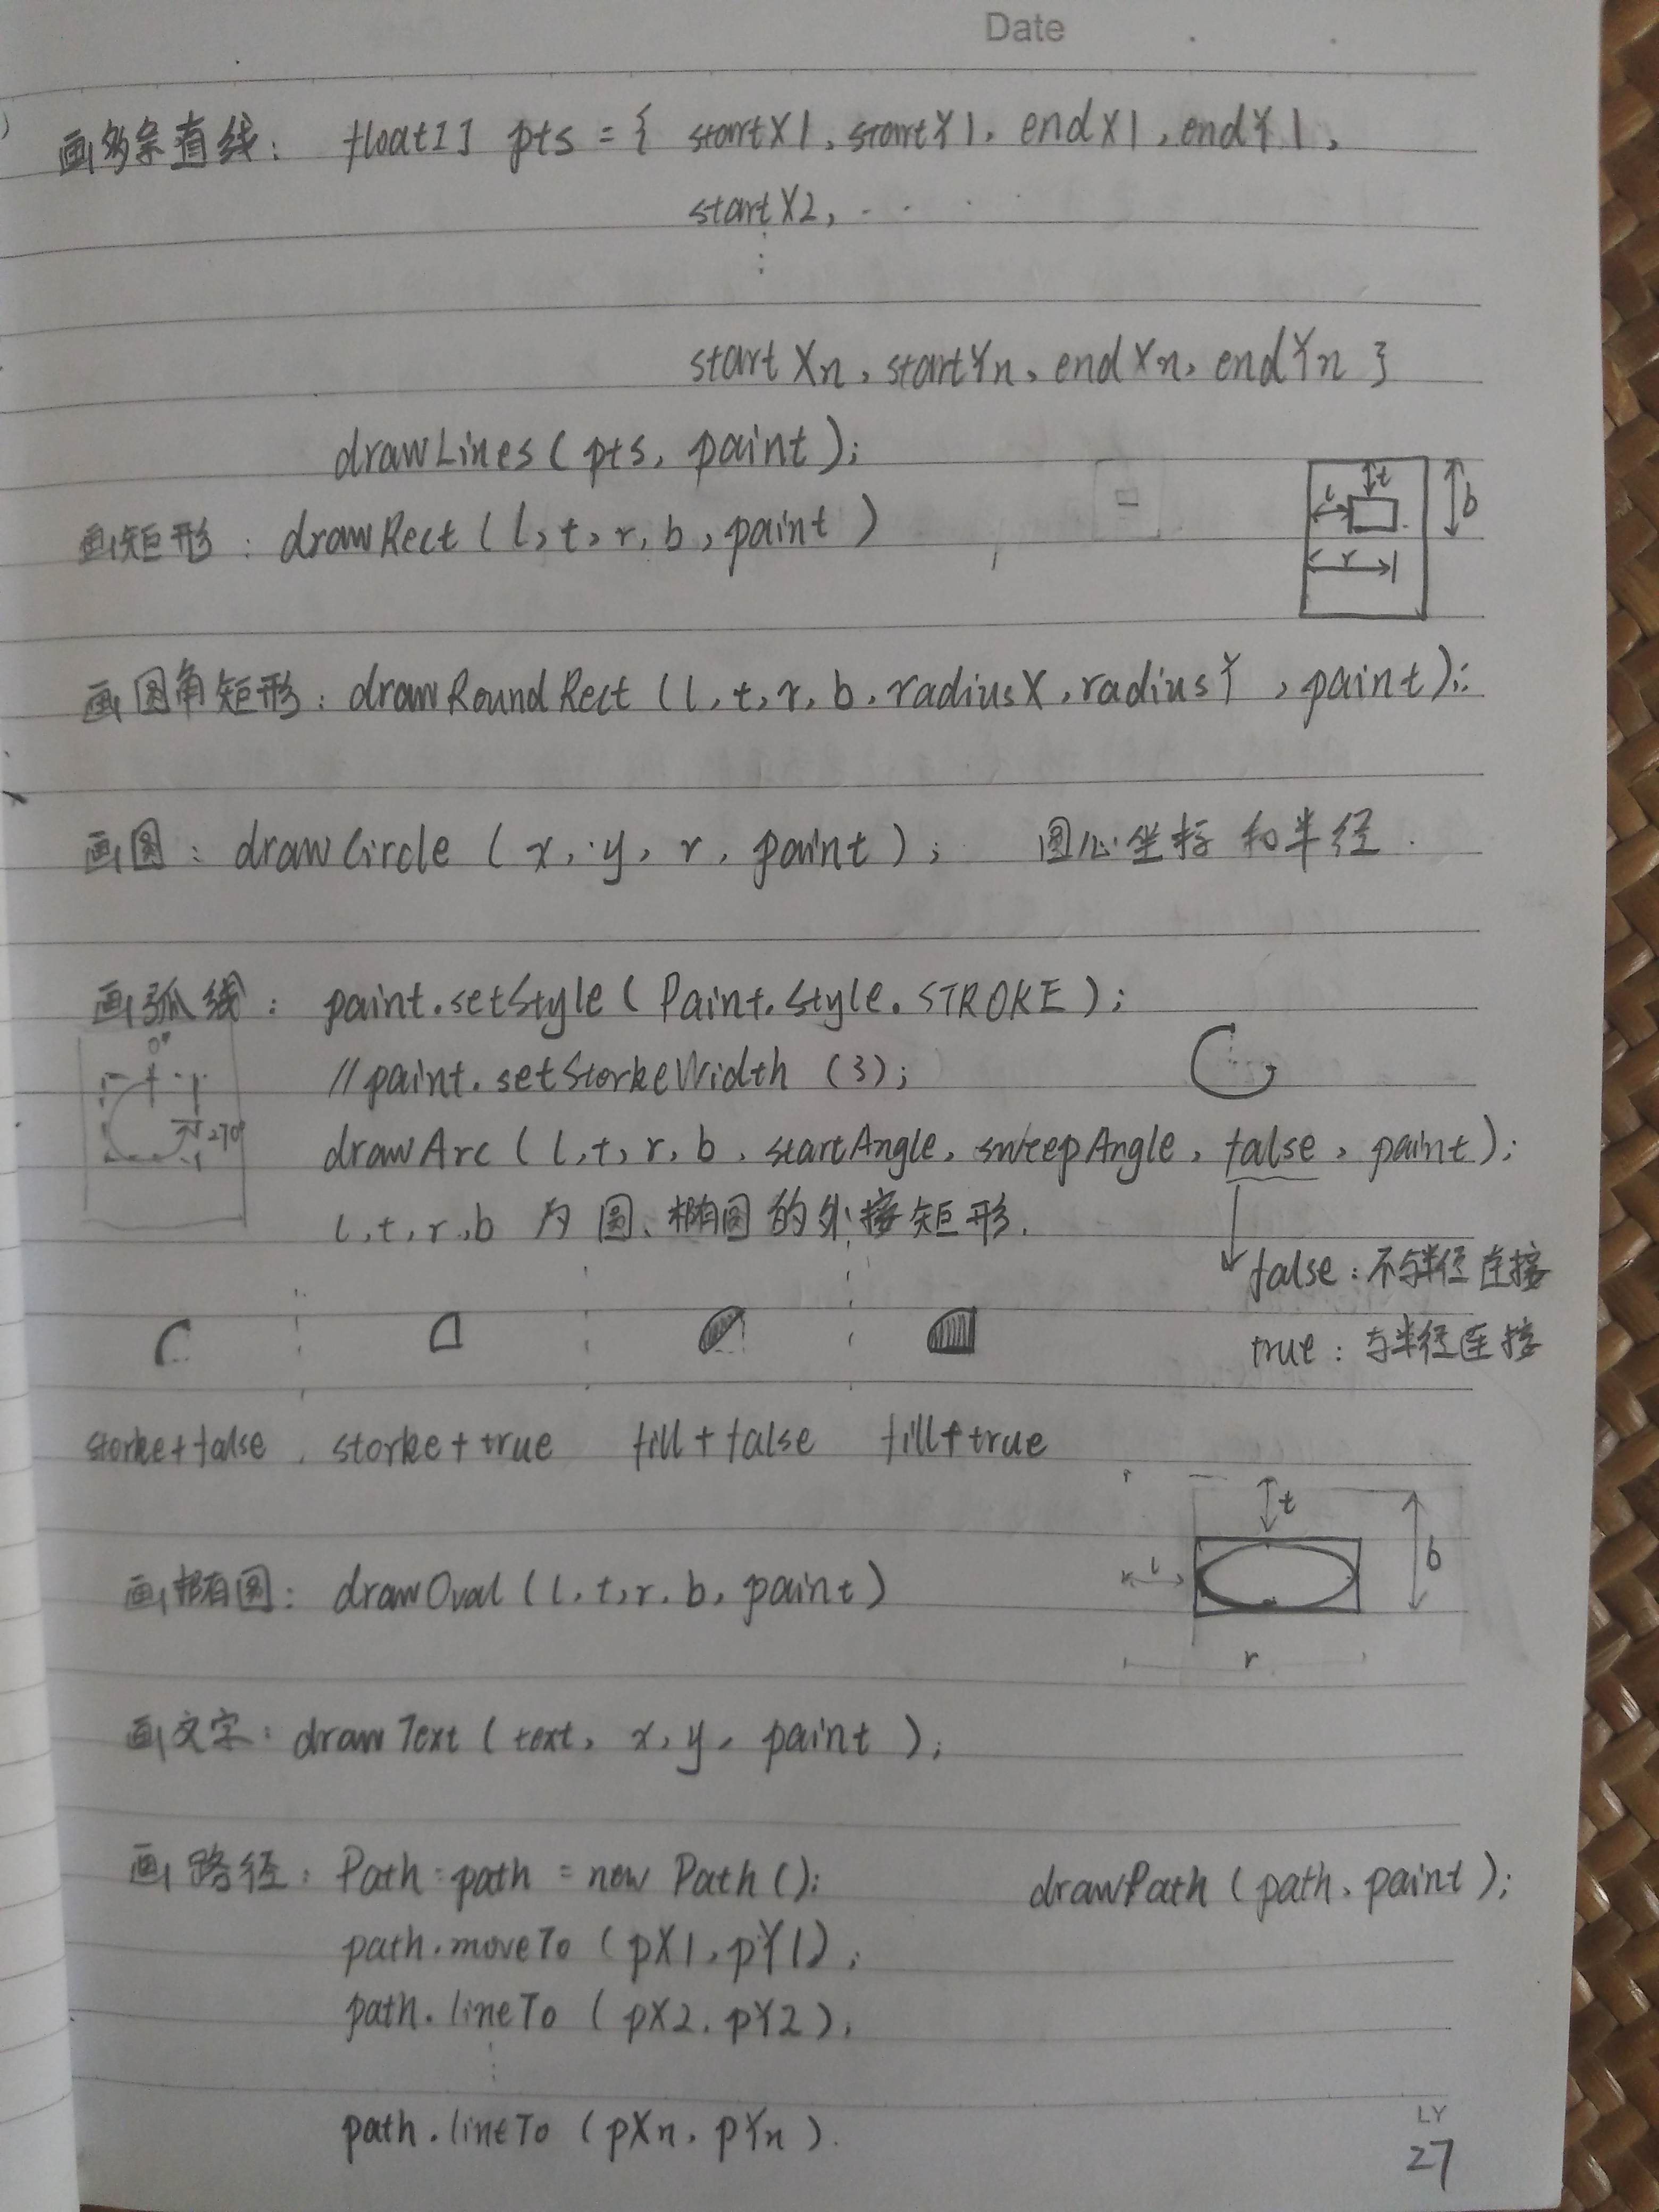 Date
画多条直线: float[] pts = { startX1, startY1, endX1, endY1,
startX2, . . .
startXn, startYn, endXn, endYn }
drawLines(pts, paint);
画矩形: drawRect(l, t, r, b, paint)
l t b
r
画圆角矩形: drawRoundRect(l, t, r, b, radiusX, radiusY, paint);
画圆: drawCircle(x, y, r, paint); 圆心坐标和半径.
画弧线: paint.setStyle(Paint.Style.STROKE);
0°
//paint.setStorkeWidth(3);
270°
drawArc(l, t, r, b, startAngle, sweepAngle, false, paint);
l, t, r, b 为圆、椭圆的外接矩形.
false: 不与半径连接
true: 与半径连接
storke+false storke+true fill+false fill+true
画椭圆: drawOval(l, t, r, b, paint)
t
l b
r
画文字: drawText(text, x, y, paint);
画路径: Path path = new Path(); drawPath(path, paint);
path.moveTo(pX1, pY1);
path.lineTo(pX2, pY2);
path.lineTo(pXn, pYn).
LY
27